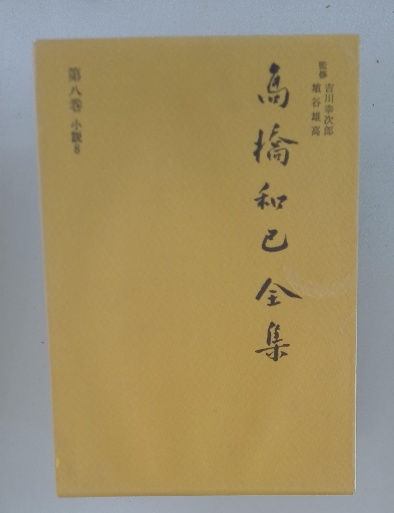 監修 吉川幸次郎
埴谷雄高
高橋和巳全集
第八巻 小説8